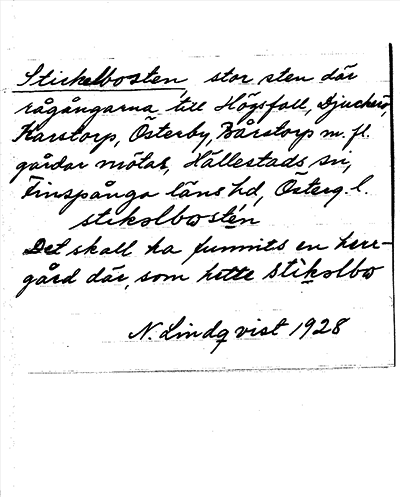 Stickelbosten, stor sten där
rågångarna till Högsfall,
Karstorp, Österby, Bårstorp m. fl.
gårdar mötas, Hällestads sn,
Finspånga läns hd, Österg. l.
stikəlbωstén
Det skall ha funnits en herr-
gård där, som hette stikəlbω
N. Lindqvist 1928